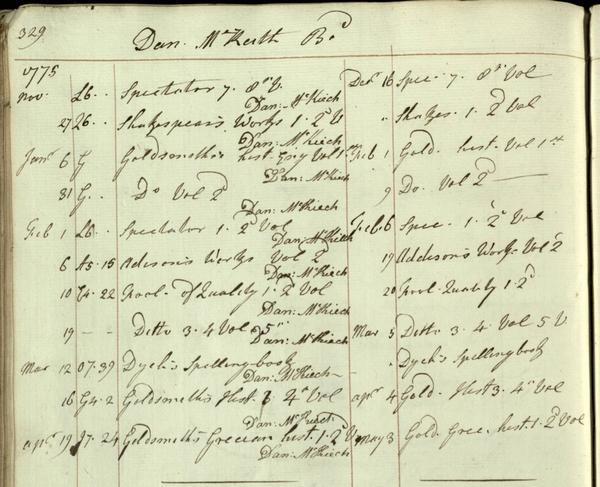 329
Dan. McKeith Bd
1775
Nov. L6. Spectator 7. 8th V. Decr 16 Spec. 7. 8th Vol
Dan: McKiech
27 26. Shakespears Works 1. 2d V " Shakes. 1. 2d Vol
Dan: McKiech
Janr 6 G Goldsmith's hist. Vol 1st Feb 1 Gold. hist. Vol 1st
Dan: McKiech
31 G. Do Vol 2d 9 Do. Vol 2d
Dan: McKiech
Feb 1 L6. Spectator 1. 2d Vol Feb. 6 Spec. 1. 2d Vol
Dan: McKeith
6 A5.15 Addison's Works Vol 2d 19 Addison's Works Vol 2
Dan: McKiech
10 G4.22 Fool of Quality 1. 2d Vol 20 Fool Quality 1. 2d
Dan: McKiech
19 - - Ditto 3. 4 Vol 5th Mar 5 Ditto 3. 4 Vol 5 V.
Dan: McKiech
Mar 12 07.39 Dych's Spellingbook " Dych's Spellingbook
Dan: McKiech
16 G4.2 Goldsmith's Hist 3. 4th Vol Apr. 4 Gold. Hist 3. 4th Vol
Dan: McKiech
Apr. 19 J7.24 Goldsmith's Grecian hist. 1. 2d V. May 3 Gold Grec. hist. 1. 2d Vol
Dan: McKiech